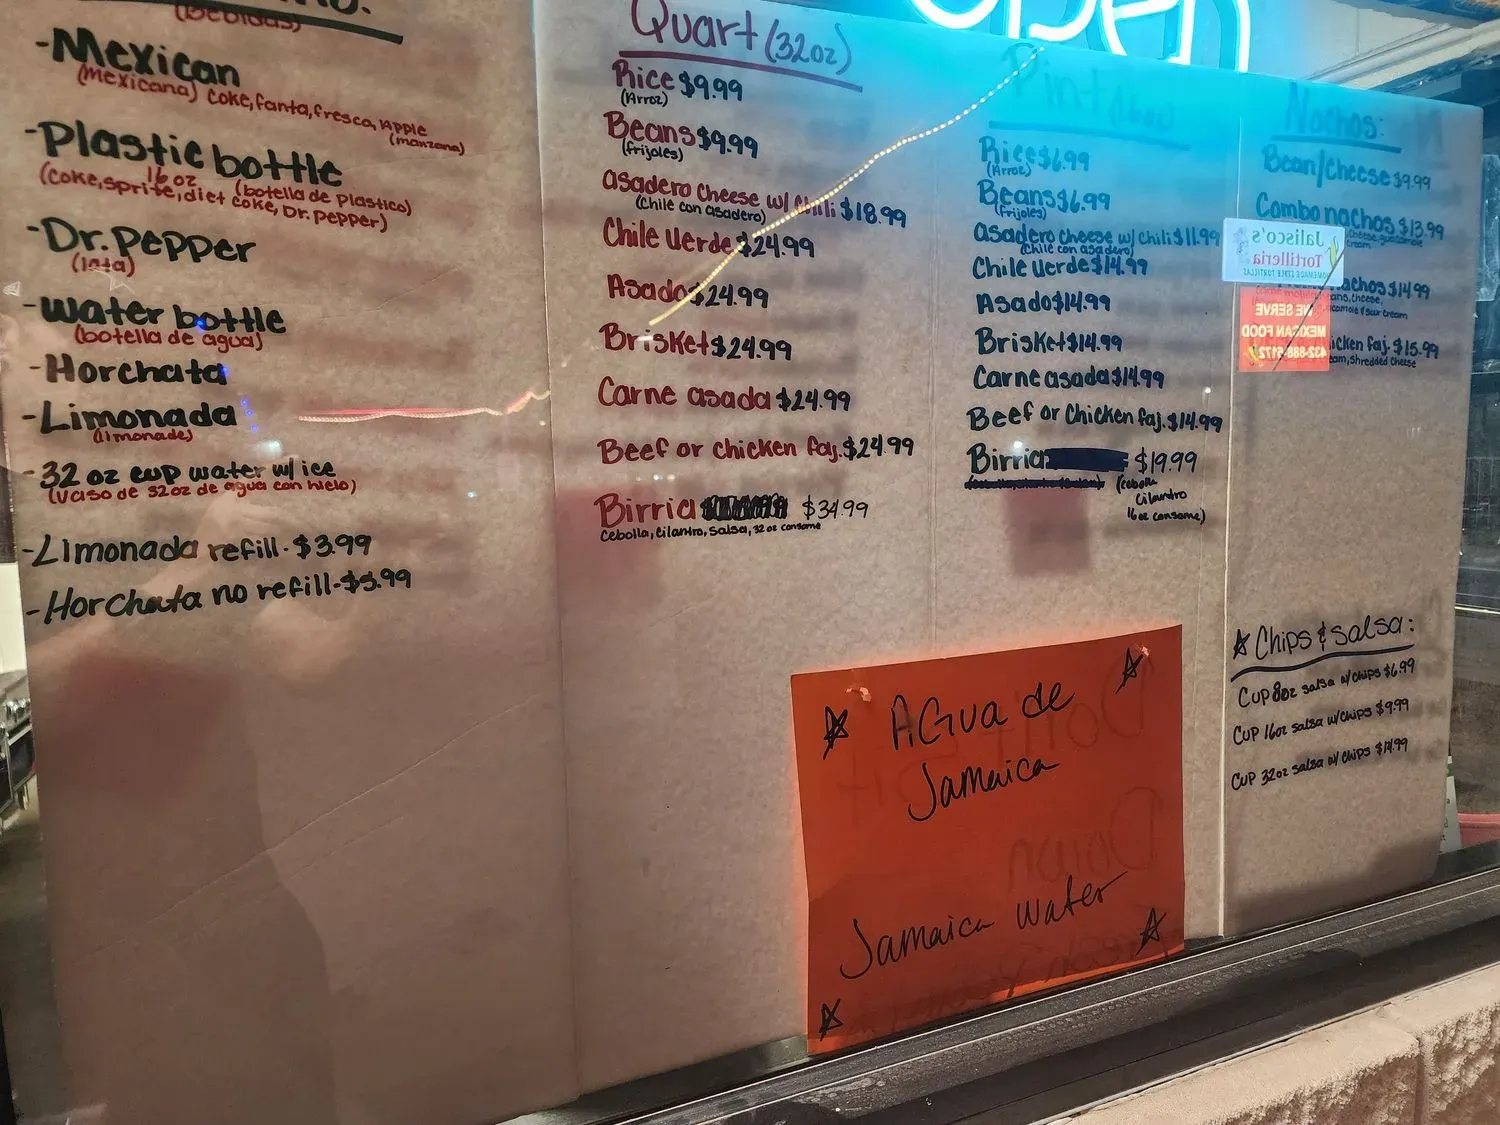 (Bebidas)
-Mexican
(Mexicana) coke, fanta, fresca, Apple
(manzana)
-Plastic bottle
16 oz (botella de plastico)
(coke, sprite, diet coke, Dr. pepper)
-Dr. pepper
(lata)
-water bottle
(botella de agua)
-Horchata
-Limonada
(limonade)
-32 oz cup water w/ ice
(vaso de 32oz de agua con hielo)
-Limonada refill - $3.99
-Horchata no refill -
Quart (32oz)
Rice $9.99
(Arroz)
Beans $9.99
(frijoles)
asadero cheese w/ chili $18.99
(Chile con asadero)
Chile Verde $24.99
Asado $24.99
Brisket $24.99
Carne asada $24.99
Beef or chicken faj. $24.99
Birria $34.99
cebolla, cilantro, salsa, 32 oz consome
Pint
Rice $6.99
(Arroz)
Beans $6.99
(frijoles)
asadero cheese w/ chili $11.99
(Chile con asadero)
Chile Verde $14.99
Asado $14.99
Brisket $14.99
Carne asada $14.99
Beef or Chicken faj. $14.99
Birria $19.99
(cebolla
cilantro
16 oz consome)
Nachos:
Bean/cheese $9.99
Combo nachos $13.99
cheese, guacamole
cream
nachos $14.99
cheese,
& sour cream
faj. $15.99
shredded cheese
Jalisco's
Tortilleria
HOMEMADE STYLE TORTILLAS
WE SERVE
MEXICAN FOOD
432-888-5172
Chips & salsa:
Cup 8oz salsa w/chips $6.99
Cup 16oz salsa w/chips $9.99
Cup 32oz salsa w/ chips $14.99
AGua de
Jamaica
Jamaica Water
Open